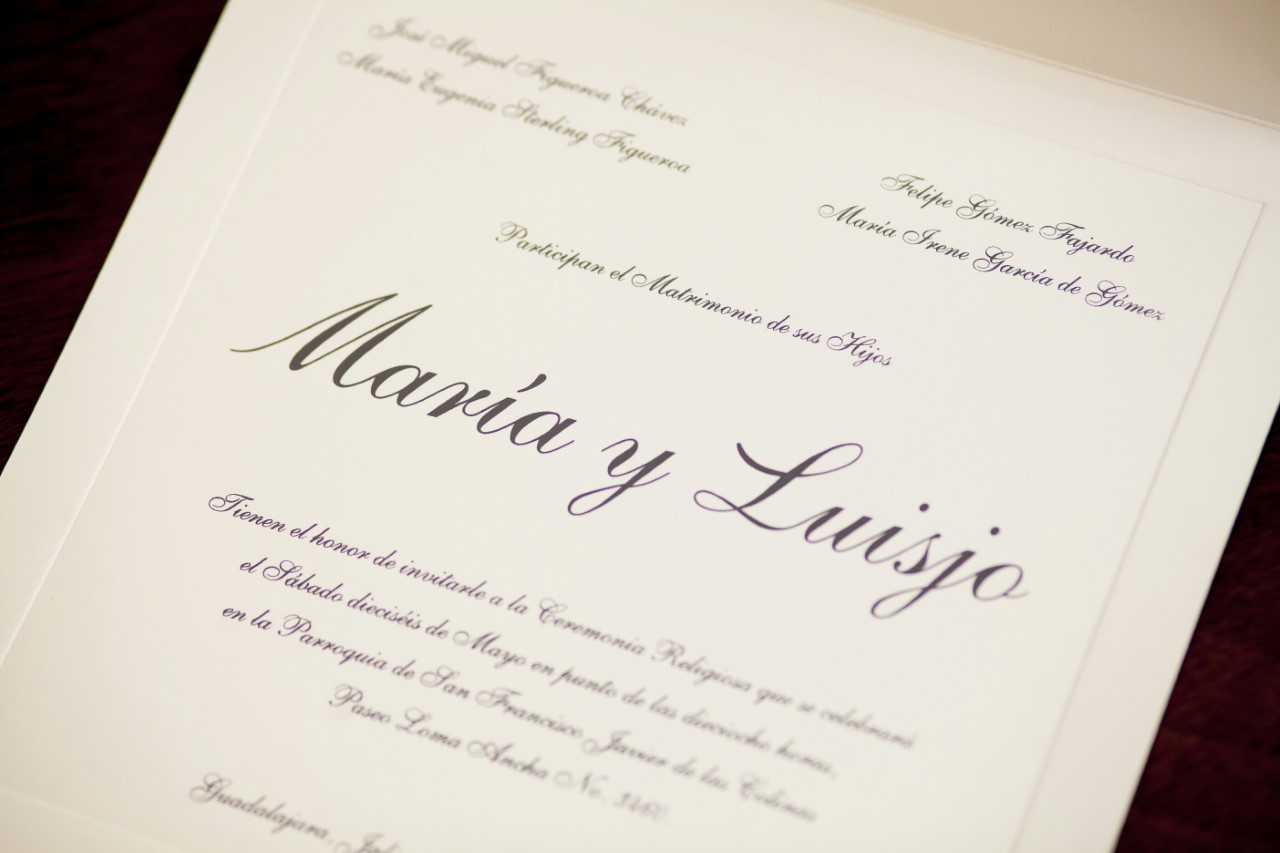 José Miguel Figueroa Chávez
María Eugenia Sterling Figueroa
Felipe Gómez Fajardo
María Irene García de Gómez
Participan el Matrimonio de sus Hijos
María y Luisjo
Tienen el honor de invitarle a la Ceremonia Religiosa que se celebrará
el Sábado dieciséis de Mayo en punto de las dieciocho horas,
en la Parroquia de San Francisco Javier de las Colinas
Paseo Loma Ancha No.
Guadalajara,